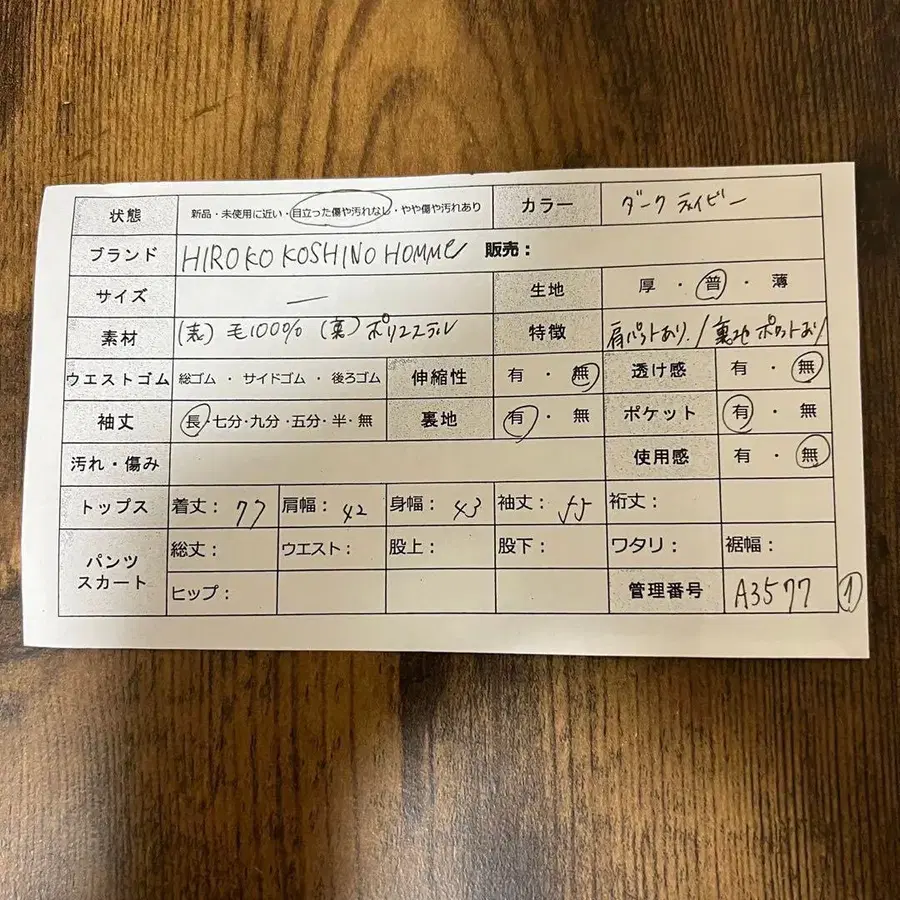 状態 新品・未使用に近い・目立った傷や汚れなし・やや傷や汚れあり カラー ダークネイビー
ブランド HIROKO KOSHINO HOMME 販売：
サイズ ― 生地 厚・普・薄
素材 (表) 毛100% (裏) ポリエステル 特徴 肩パットあり / 裏地ポケットあり
ウエストゴム 総ゴム ・ サイドゴム ・ 後ろゴム 伸縮性 有 ・ 無 透け感 有 ・ 無
袖丈 長・七分・九分・五分・半・無 裏地 有 ・ 無 ポケット 有 ・ 無
汚れ・傷み 使用感 有 ・ 無
トップス 着丈：77 肩幅：42 身幅：43 袖丈：55 裄丈：
パンツ スカート 総丈： ウエスト： 股上： 股下： ワタリ： 裾幅：
ヒップ： 管理番号 A3577 ①